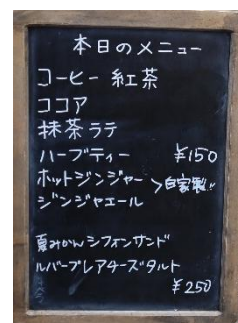 本日のメニュー
コーヒー 紅茶
ココア
抹茶ラテ
ハーブティー ¥150
ホットジンジャー > 自家製!!
ジンジャエール
夏みかんシフォンサンド
ルバーブレアチーズタルト
¥250